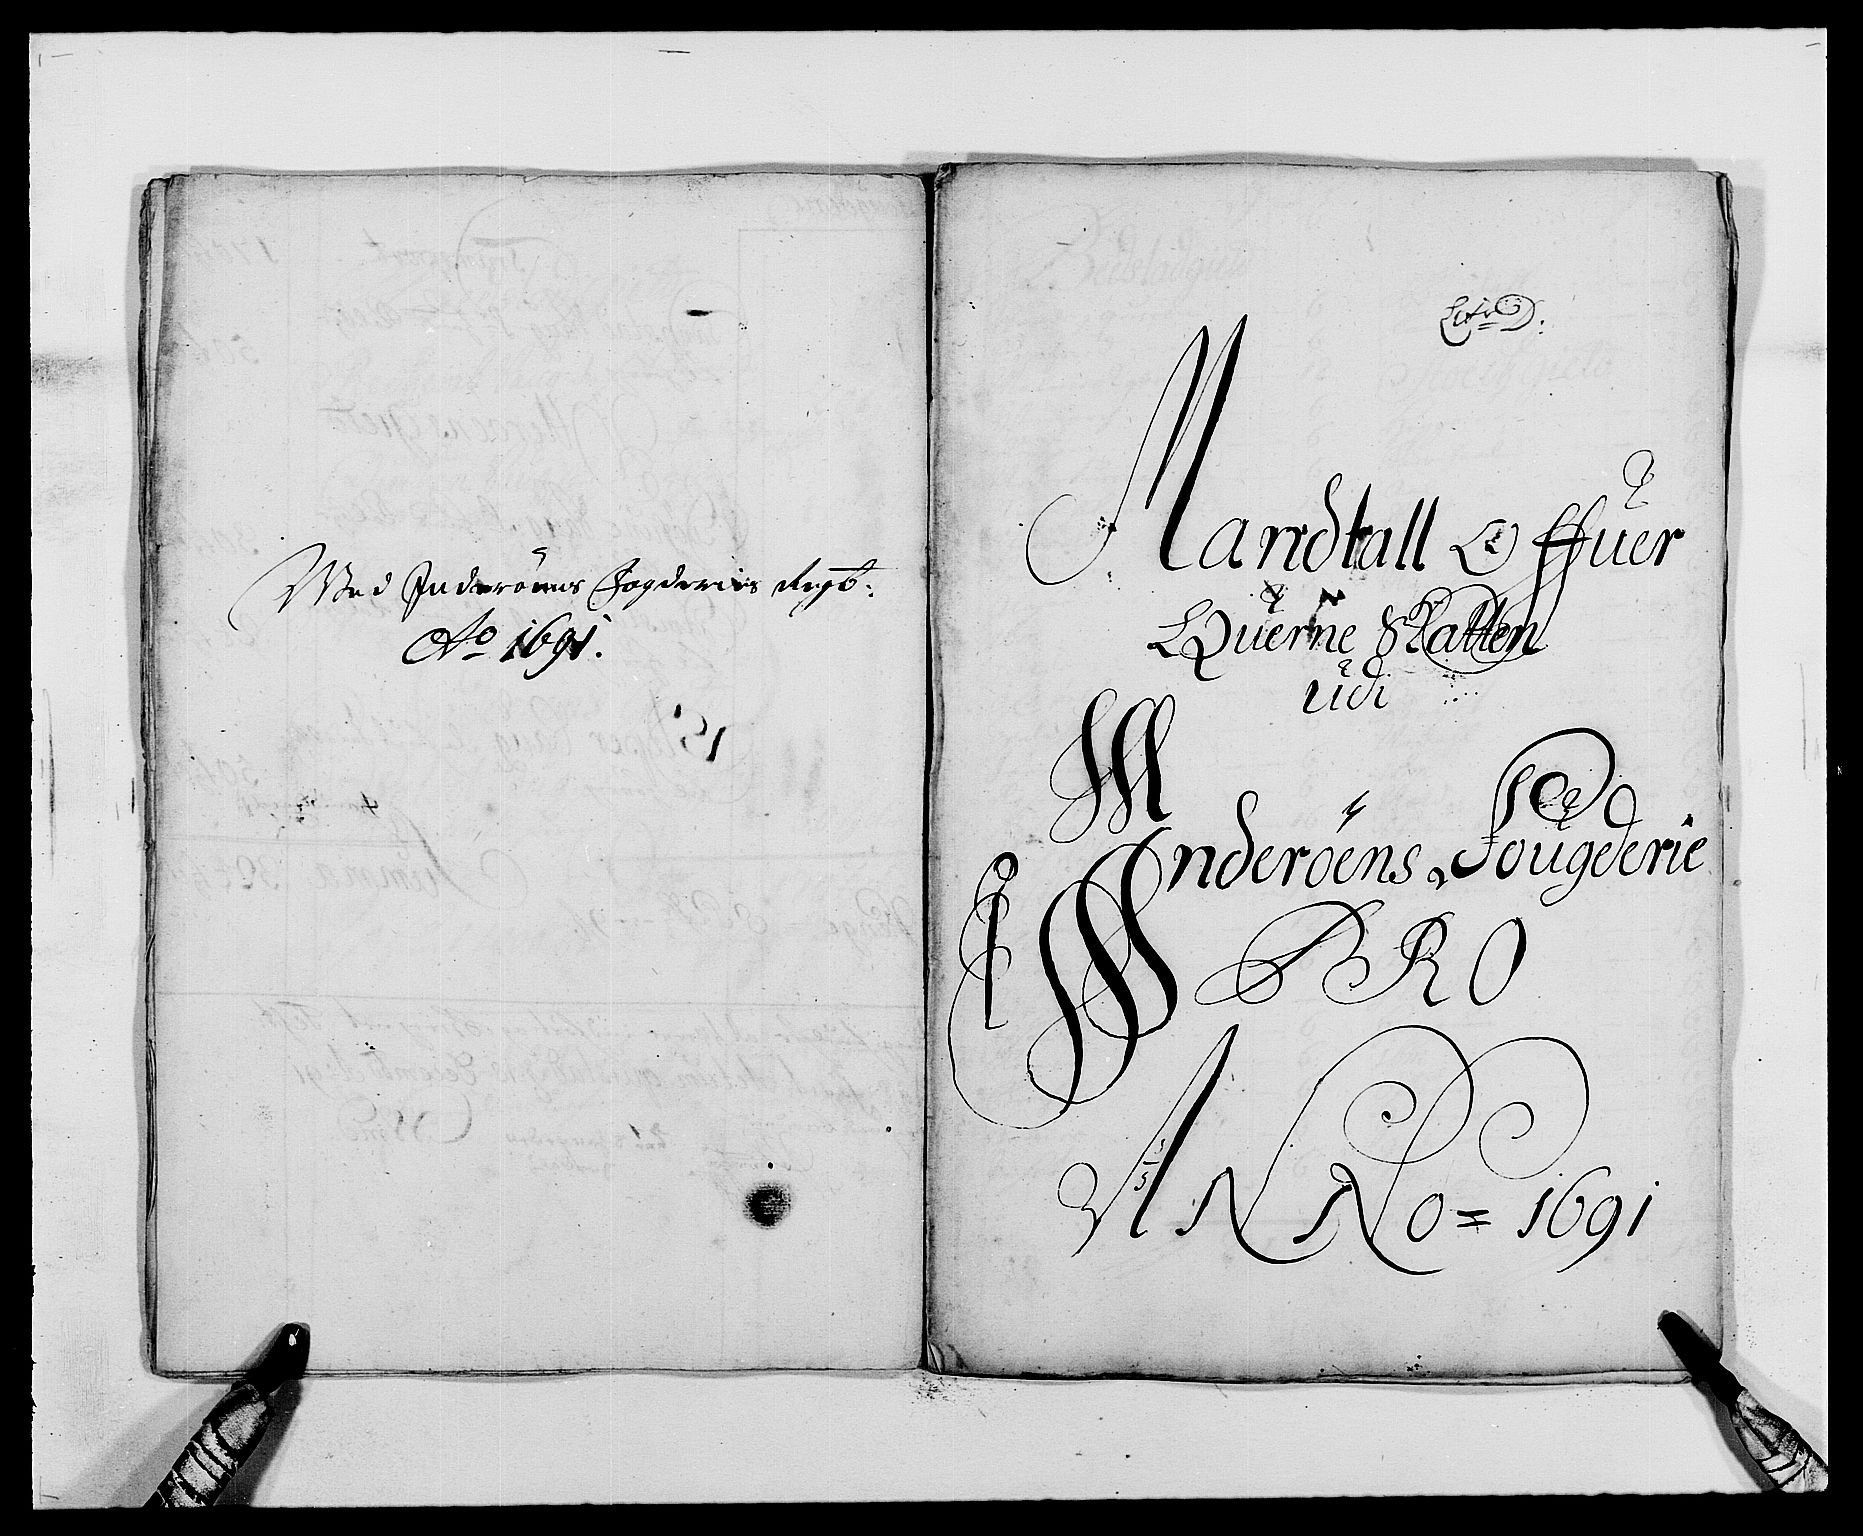 Med Inderöens Fogderies Regb:
Ao 1691.
Lit: D:
Mandtall Offuer
Querne Skatten
udi
Inderöens Fougderie
PRO
ANNO = 1691